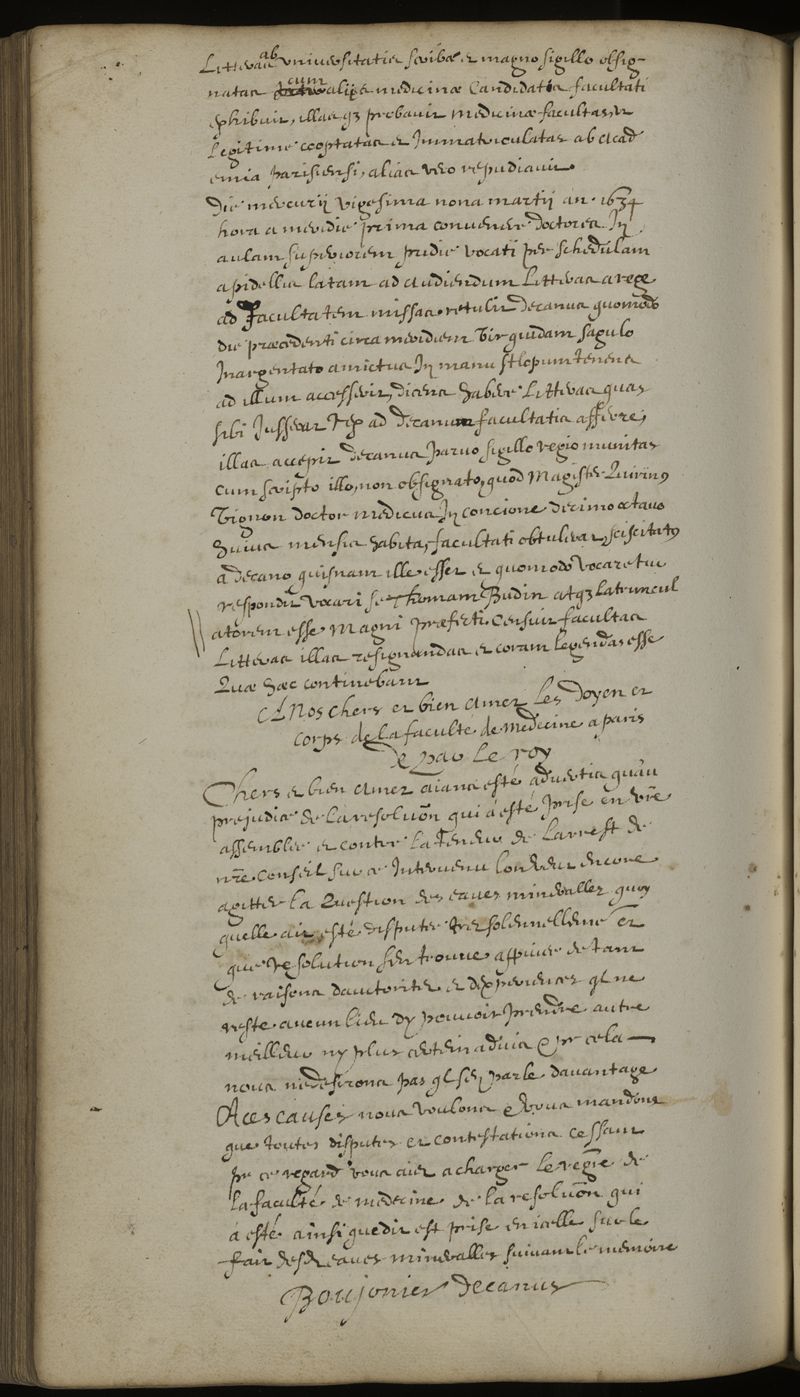 Litteras ab universitatis scriba et magno sigillo obsig-
natas cum aliis medicinæ candidatis facultati
exhibuit, illas q3 probavit medicinæ facultas, ut
legitime cooptatas et immatriculatas ab acad
emia parisiensi, alias vero repudiavit.
Die mercurij vigesima nona martij an. 1634
hora a meridie prima convenere doctores In
aulam superiorem pridie vocati per schedulam
a pidellis latam ad audiendum Litteras a rege
ad Facultatem missas. retulit decanus quomodo
die præcedenti circa meridiem Vir quidam sagulo
Inargentato amictus In manu stlopum tenens
ad illum accesserit, dicens habere Litteras quas
sibi Jusserat Rex ad decanum facultatis afferre,
illas accepit decanus parvo sigillo regio munitas
cum scripto illo, non obsignato, quod Magister Quirinus
Vignon doctor medicus In concione decimo octavo
huius mensis habita, facultati obtulerat, sciscitatus
a decano quisnam ille esset et quomodo vocaretur
respondit vocari se Thomam Budin atq3 latruncul
atorem esse Magni præfecti. Censuit facultas
Litteras illas resignandas et coram legendas esse
Quæ hæc continebant
A Nos chers et bien Amez Les Doyen et
corps de La faculté de Medecine a paris
De par Le roy
Chers et bien Amez aians esté advertis qu'au
prejudice de la resolu͠on qui a esté prise en vr͠e
assemblee et contre La Teneur de Larrest de
nr͠e conseil sur ce Intervenu lon veut encore
agitter la Question des eaues minerallez quoy
quelle ait esté disputee tres solennelleme͠t et
que la Resolution sen trouve appuiee de tant
de raisons dautoritez et dexperiences ql ne
reste aucun lieu dy pouvoir prendre autre
meilleur ny plus certein advis & pr cela
nous ne desirons pas ql sen parle davantage
A ces causes nous voulons & vous mandons
que toutes disputes et contestations cessant
pr ce regard vous aiez a charger le registre de
la faculté de medecine de la resolu͠on qui
a esté ainsi que dit est prise en icelle sur le
fait desd eaues minerallez suivant le memoire
Boujonier decanus